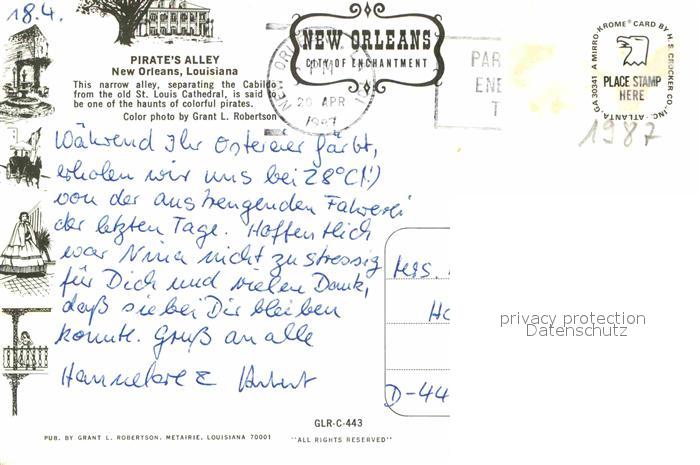 18.4.
PIRATE'S ALLEY
New Orleans, Louisiana
This narrow alley, separating the Cabildo
from the old St. Louis Cathedral, is said to
be one of the haunts of colorful pirates.
Color photo by Grant L. Robertson
NEW ORLEANS
CITY OF ENCHANTMENT
NEW ORLEANS
PM
20 APR
1987
PAR
ENE
T
A MIRRO-KROME® CARD BY H.S. CROCKER CO., INC. ATLANTA GA 30341
PLACE STAMP
HERE
1987
Während Ihr Ostereier färbt,
erholen wir uns bei 28°C(!)
von der anstrengenden Fahrerei
der letzten Tage. Hoffentlich
war Nina nicht zu stressig
für Dich und vielen Dank,
daß sie bei Dir bleiben
konnte. Gruß an alle
Hannelore &
D-44
privacy protection
Datenschutz
GLR-C-443
PUB. BY GRANT L. ROBERTSON, METAIRIE, LOUISIANA 70001 "ALL RIGHTS RESERVED"